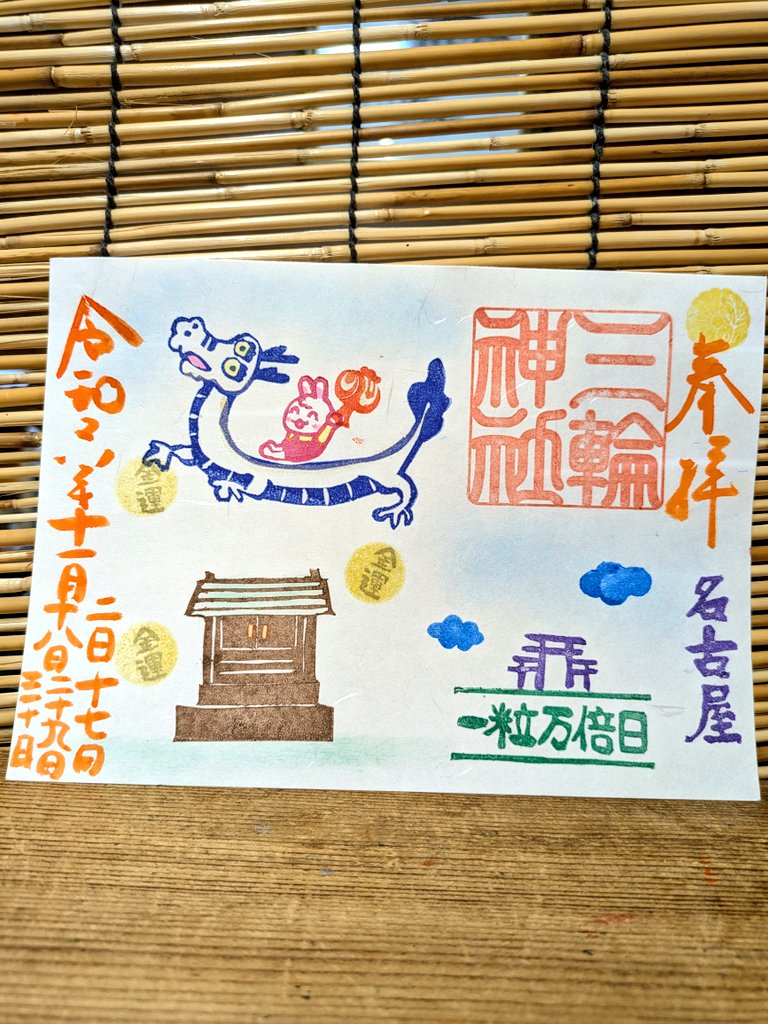 奉拝
名古屋
三輪
神社
一粒万倍日
金運
金運
金運
令和六年十一月
二日十七日
十八日二十九日
三十日